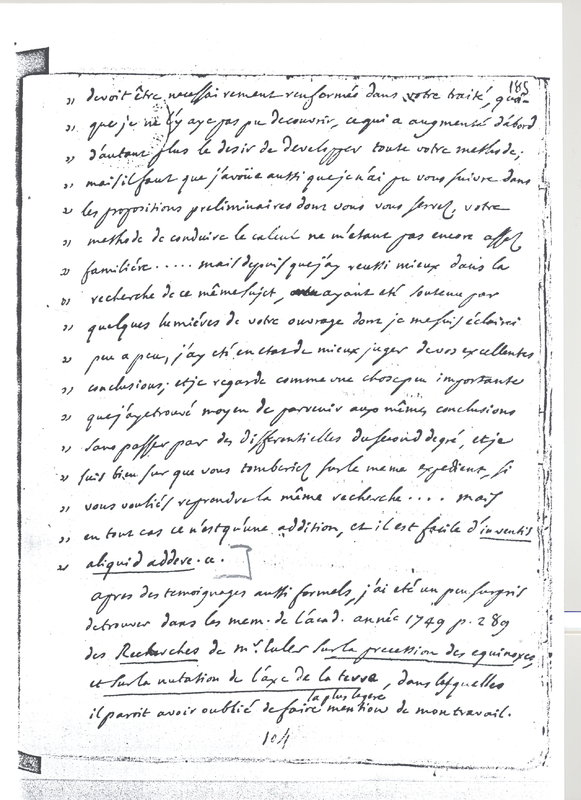 185
„ devoit être necessairement renfermée dans votre traité, quoi-
„ que je ne l'y aye pas pu decouvrir, ce qui a augmenté d'abord
„ d'autant plus le desir de developper toute votre methode;
„ mais il faut que j'avoüe aussi que je n'ai pu vous suivre dans
„ les propositions preliminaires dont vous vous servez, votre
„ methode de conduire le calcul ne m'etant pas encore assez
„ familiére..... mais depuis que j'ay reussi mieux dans la
„ recherche de ce même sujet, ayant eté soutenu par
„ quelques lumiéres de votre ouvrage dont je me suis éclairci
„ peu a peu, j'ay eté en etat de mieux juger de vos excellentes
„ conclusions; et je regarde comme une chose peu importante
„ que j'aye trouvé moyen de parvenir aux mêmes conclusions
„ sans passer par des differentielles du second degré, et je
„ suis bien sur que vous tomberiez sur le meme expedient, si
„ vous vouliés reprendre la même recherche.... mais
„ en tout cas ce n'est qu'une addition, et il est facile d'inventis
„ aliquid addere. a.
apres des temoignages aussi formels, j'ai eté un peu surpris
de trouver dans les mem. de l'acad. année 1749 p. 289
des Recherches de mr. Euler sur la precession des equinoxes,
et sur la nutation de l'axe de la terre, dans lesquelles
il paroit avoir oublié de faire la plus legere mention de mon travail.
104